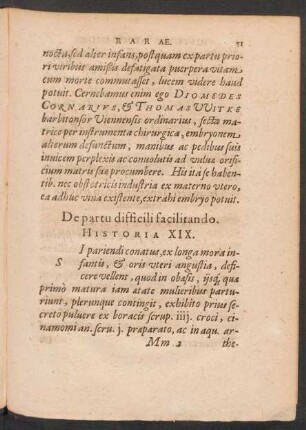 RARAE. 31
nocta, sed alter infans, postquam ex partu prio-
ri viribus amissis defatigata puerpera vitam
cum morte commutasset, lucem videre haud
potuit. Cernebamus enim ego DIOMEDES
CORNARIVS, & THOMAS WITKE
barbitonsor Viennensis ordinarius, secta ma-
trice per instrumenta chirurgica, embryonem
alterum defunctum, manibus ac pedibus suis
inuicem perplexis ac conuolutis ad vuluæ orifi-
cium matris suæ procumbere. His ita se haben-
tib. nec obstetricis industria ex materno vtero,
ea adhuc viua existente, extrahi embryo potuit.
De partu difficili facilitando.
HISTORIA XIX.
SI pariendi conatus, ex longa mora in-
fantis, & oris vteri angustia, defi-
cere vellent, quod in obæsis, ijsq́, qua
primò matura iam ætate mulieribus partu-
riunt, plerunque contingit, exhibito prius se-
creto puluere ex boracis scrup. iiij. croci, ci-
namomi an. scru. j. præparato, ac in aqu. ar-
Mm 2 the-